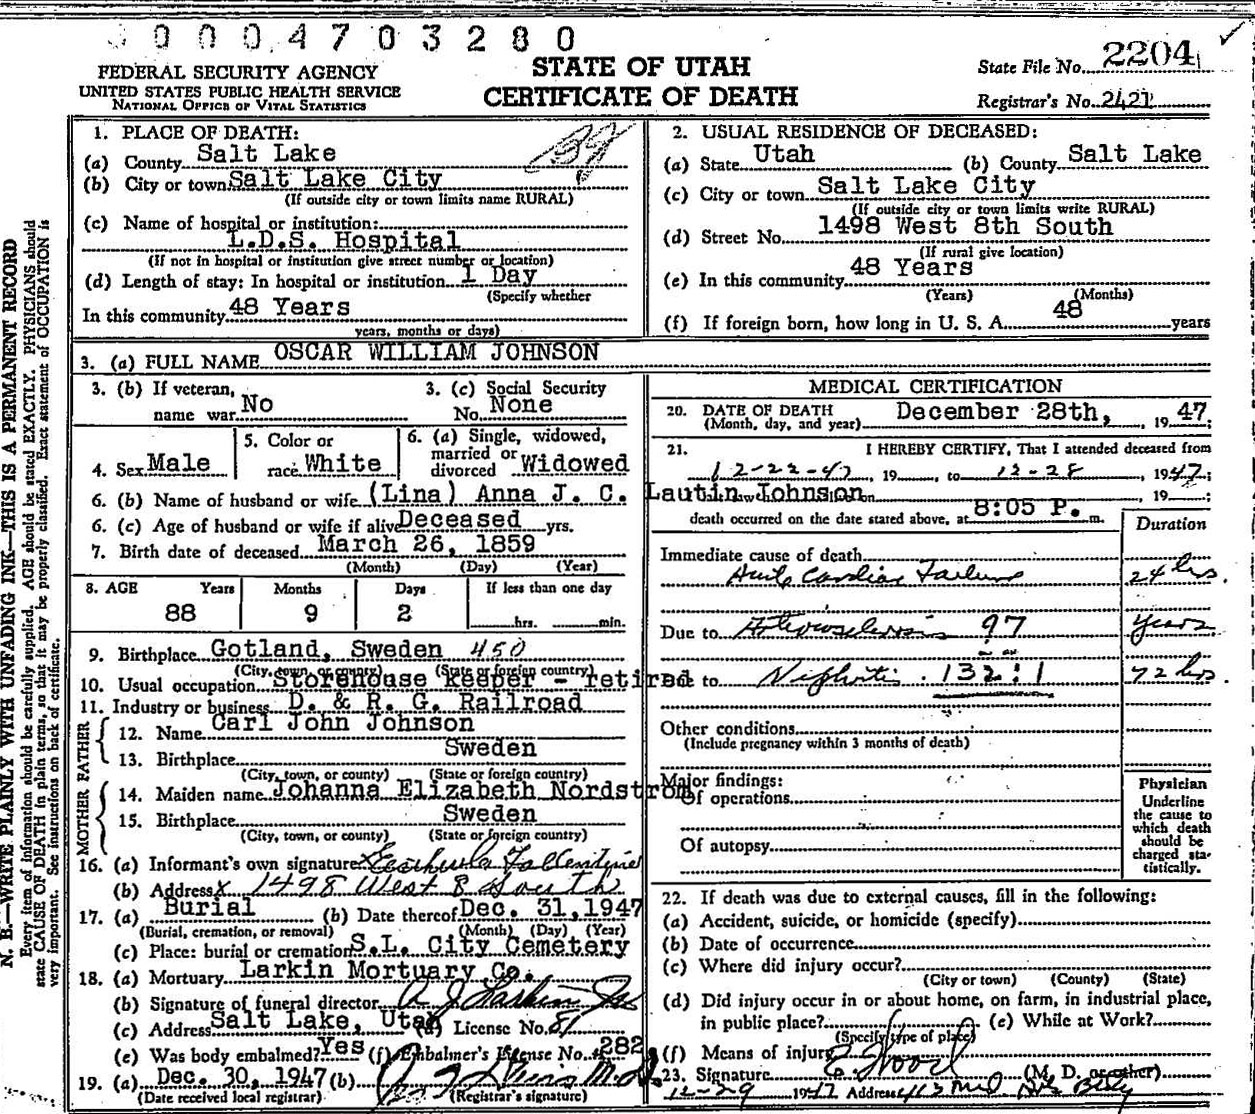 0 0 0 4 7 0 3 2 8 0
FEDERAL SECURITY AGENCY
UNITED STATES PUBLIC HEALTH SERVICE
NATIONAL OFFICE OF VITAL STATISTICS
STATE OF UTAH
CERTIFICATE OF DEATH
State File No. 2204
Registrar's No. 2421
N. B.—WRITE PLAINLY WITH UNFADING INK—THIS IS A PERMANENT RECORD
Every item of information should be carefully supplied. AGE should be stated EXACTLY. PHYSICIANS should
state CAUSE OF DEATH in plain terms, so that it may be properly classified. Exact statement of OCCUPATION is
very important. See instructions on back of certificate.
1. PLACE OF DEATH:
(a) County Salt Lake
(b) City or town Salt Lake City
(If outside city or town limits name RURAL)
(c) Name of hospital or institution:
L.D.S. Hospital
(If not in hospital or institution give street number or location)
(d) Length of stay: In hospital or institution 1 Day
(Specify whether
In this community 48 Years
years, months or days)
2. USUAL RESIDENCE OF DECEASED:
(a) State Utah (b) County Salt Lake
(c) City or town Salt Lake City
(If outside city or town limits write RURAL)
(d) Street No. 1498 West 8th South
(If rural give location)
(e) In this community 48 Years
(Years) (Months)
(f) If foreign born, how long in U. S. A. 48 years
3. (a) FULL NAME OSCAR WILLIAM JOHNSON
3. (b) If veteran, name war No
3. (c) Social Security No. None
4. Sex Male
5. Color or race White
6. (a) Single, widowed, married or divorced Widowed
6. (b) Name of husband or wife (Lina) Anna J. C. Lautin Johnson
6. (c) Age of husband or wife if alive Deceased yrs.
7. Birth date of deceased March 26, 1859
(Month) (Day) (Year)
8. AGE Years Months Days If less than one day
88 9 2 hrs. min.
9. Birthplace Gotland, Sweden 450
(City, town, or county) (State or foreign country)
10. Usual occupation Storehouse keeper - retired
11. Industry or business D. & R. G. Railroad
FATHER
12. Name Carl John Johnson
13. Birthplace Sweden
(City, town, or county) (State or foreign country)
MOTHER
14. Maiden name Johanna Elizabeth Nordstrom
15. Birthplace Sweden
(City, town, or county) (State or foreign country)
16. (a) Informant's own signature
(b) Address x 1498 West 8 South
17. (a) Burial (b) Date thereof Dec. 31, 1947
(Burial, cremation, or removal) (Month) (Day) (Year)
(c) Place: burial or cremation S.L. City Cemetery
18. (a) Mortuary Larkin Mortuary Co.
(b) Signature of funeral director
(c) Address Salt Lake, Utah (d) License No. 81
(e) Was body embalmed? Yes (f) Embalmer's License No. 282
19. (a) Dec. 30, 1947 (b)
(Date received local registrar) (Registrar's signature)
MEDICAL CERTIFICATION
20. DATE OF DEATH December 28th, 1947;
(Month, day, and year)
21. I HEREBY CERTIFY, That I attended deceased from
12-22-47, 19 , to 12-28, 1947;
, 19 ;
death occurred on the date stated above, at 8:05 P. m.
Duration
Immediate cause of death
Acute Cardiac Failure 24 hrs.
Due to Arteriosclerosis 97 years
Due to Nephritis 132:1 72 hrs.
Other conditions
(Include pregnancy within 3 months of death)
Major findings:
Of operations
Of autopsy
Physician
Underline
the cause to
which death
should be
charged sta-
tistically.
22. If death was due to external causes, fill in the following:
(a) Accident, suicide, or homicide (specify)
(b) Date of occurrence
(c) Where did injury occur?
(City or town) (County) (State)
(d) Did injury occur in or about home, on farm, in industrial place,
in public place? (e) While at Work?
(Specify type of place)
(f) Means of injury
23. Signature (M. D. or other)
12-29 1947 Address 412 Med Arts Bldg